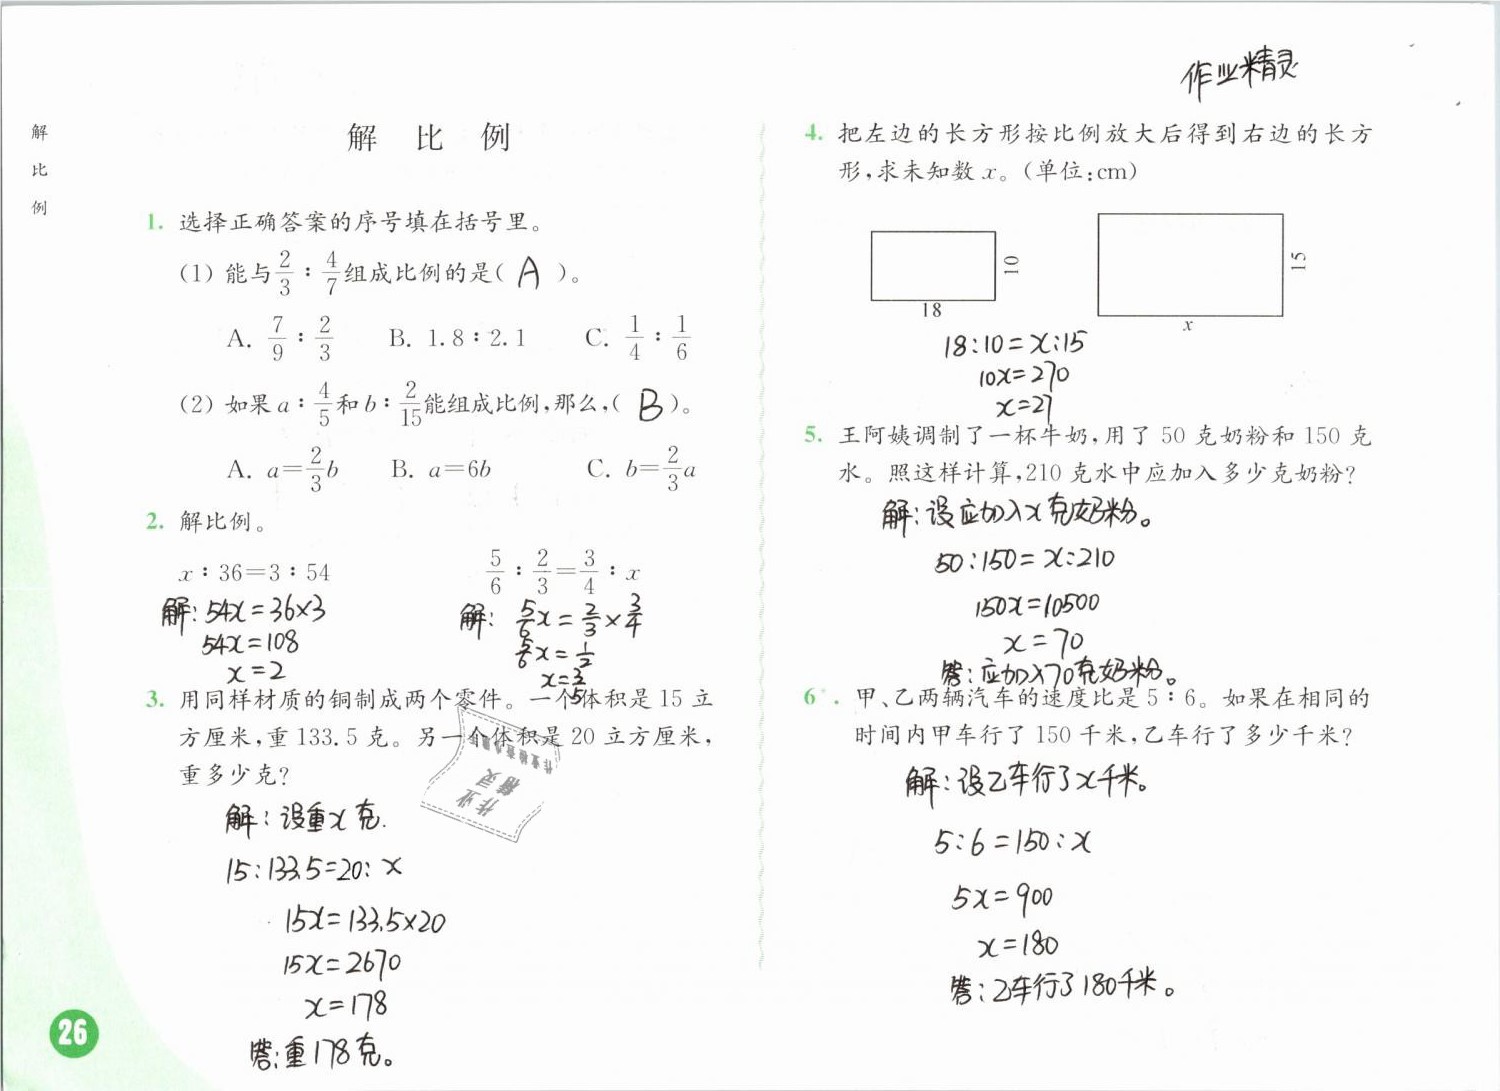 作业精灵
解比例
解 比 例
1. 选择正确答案的序号填在括号里。
(1) 能与2/3∶4/7组成比例的是( A )。
A. 7/9∶2/3 B. 1.8∶2.1 C. 1/4∶1/6
(2) 如果a∶4/5和b∶2/15能组成比例,那么,( B )。
A. a=2/3b B. a=6b C. b=2/3a
2. 解比例。
x∶36=3∶54 5/6∶2/3=3/4∶x
解: 54x=36×3
54x=108
x=2
解: 5/6x=2/3×3/4
5/6x=1/2
x=3/5
3. 用同样材质的铜制成两个零件。一个体积是15立
方厘米,重133.5克。另一个体积是20立方厘米,
重多少克?
作业精灵
解: 设重x克.
15:133.5=20:x
15x=133.5×20
15x=2670
x=178
答:重178克。
26
4. 把左边的长方形按比例放大后得到右边的长方
形,求未知数x。(单位:cm)
10
18
15
x
18:10=x:15
10x=270
x=27
5. 王阿姨调制了一杯牛奶,用了50克奶粉和150克
水。照这样计算,210克水中应加入多少克奶粉?
解:设应加入x克奶粉。
50:150=x:210
150x=10500
x=70
答:应加入70克奶粉。
6. 甲、乙两辆汽车的速度比是5∶6。如果在相同的
时间内甲车行了150千米,乙车行了多少千米?
解:设乙车行了x千米。
5:6=150:x
5x=900
x=180
答:乙车行了180千米。